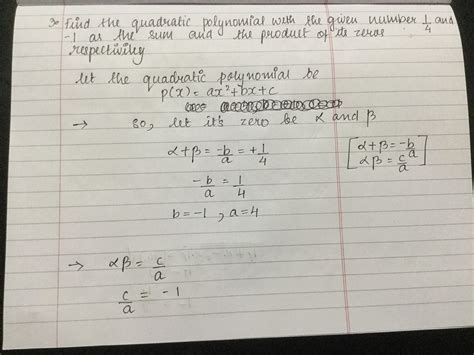 3→ Find the quadratic polynomial with the given number 1/4 and
-1 as the sum and the product of its zeros
respectiving
let the quadratic polynomial be
p(x) = ax²+bx+c
→ so, let it's zero be α and β
α+β = -b/a = +1/4
[α+β = -b/a
αβ = c/a]
-b/a = 1/4
b = -1 , a = 4
→ αβ = c/a
c/a = -1